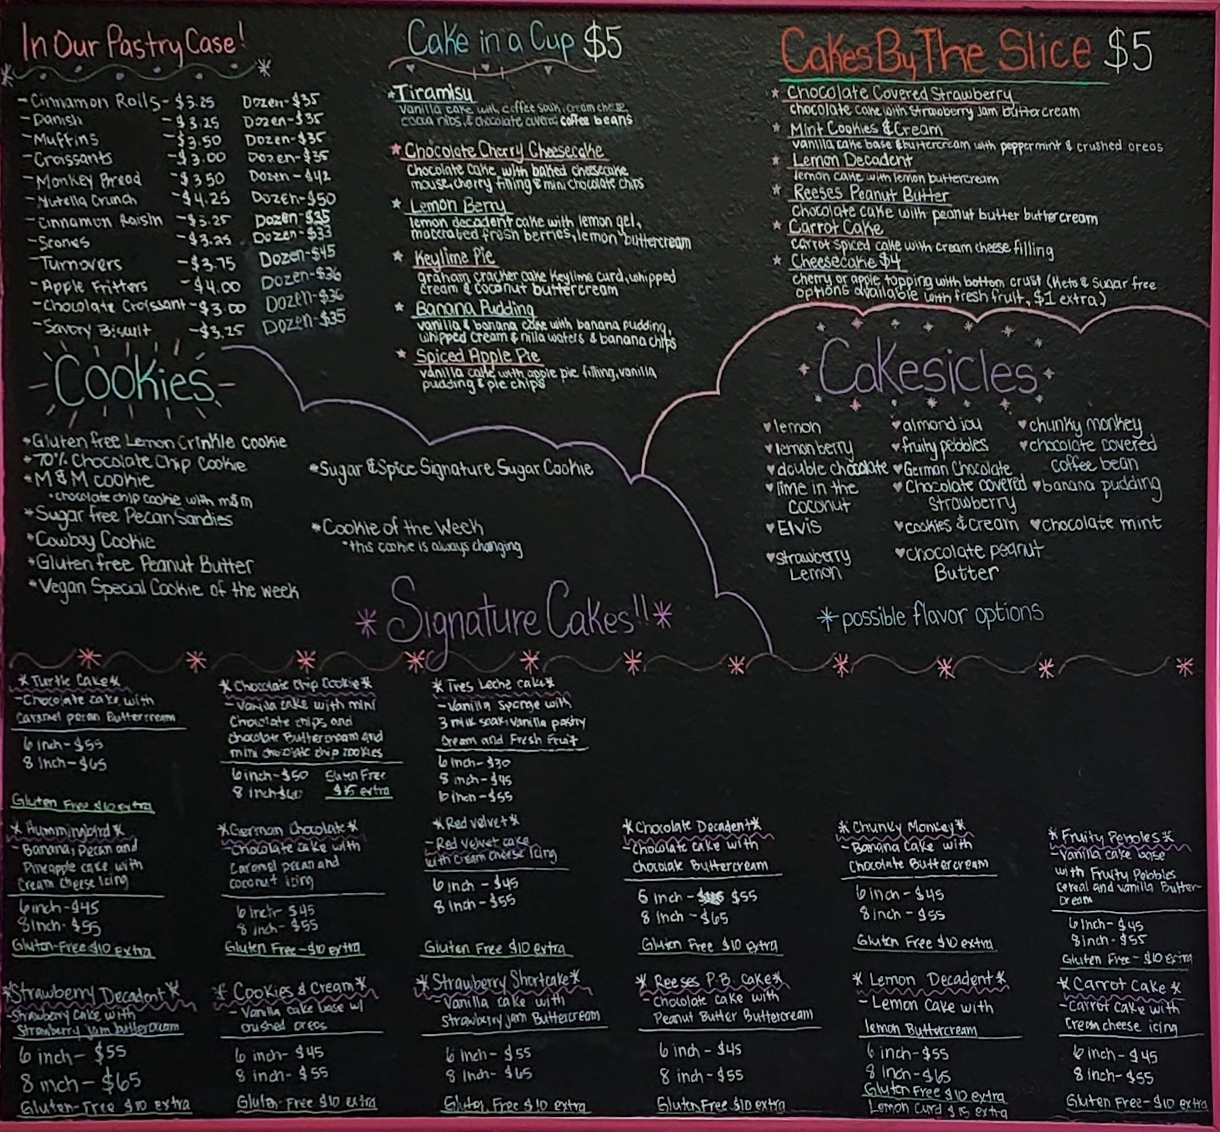 In Our Pastry Case!
-Cinnamon Rolls-$3.25 Dozen-$35
-Danish -$3.25 Dozen-$35
-Muffins -$3.50 Dozen-$35
-Croissants -$3.00 Dozen-$35
-Monkey Bread -$3.50 Dozen-$42
-Nutella Crunch -$4.25 Dozen-$50
-Cinnamon Raisin -$3.25 Dozen-$35
-Scones -$3.25 Dozen-$33
Turnovers -$3.75 Dozen-$45
-Apple Fritters -$4.00 Dozen-$36
-Chocolate Croissant-$3.00 Dozen-$36
-Savory Biscuit -$3.25 Dozen-$35
Cake in a Cup $5
*Tiramisu
vanilla cake with coffee soak, cream cheese
cocoa nibs, & chocolate covered coffee beans
*Chocolate Cherry Cheesecake
Chocolate cake with baked cheesecake
mouse, cherry filling & mini chocolate chips
*Lemon Berry
lemon decadent cake with lemon gel,
fresh berries, lemon buttercream
*Keylime Pie
graham cracker cake Keylime curd, whipped
cream & coconut buttercream
*Banana Pudding
vanilla & banana cake with banana pudding,
whipped cream & nilla wafers & banana chips
*Spiced Apple Pie
vanilla cake with apple pie filling, vanilla
pudding & pie chips
Cakes By The Slice $5
*Chocolate Covered Strawberry
chocolate cake with strawberry jam buttercream
*Mint Cookies & Cream
vanilla cake base & buttercream with peppermint & crushed oreos
*Lemon Decadent
lemon cake with lemon buttercream
*Reeses Peanut Butter
Chocolate cake with peanut butter buttercream
*Carrot Cake
carrot spiced cake with cream cheese filling
*Cheesecake $4
cherry or apple topping with bottom crust (Keto & Sugar free
options available with fresh fruit, $1 extra)
Cookies
*Gluten free Lemon Crinkle cookie
*70% Chocolate Chip Cookie
*M&M cookie
*chocolate chip cookie with m&m
*Sugar free Pecan Sandies
*Cowboy Cookie
*Gluten free Peanut Butter
*Vegan Special Cookie of the week
*Sugar & Spice Signature Sugar Cookie
*Cookie of the Week
*this cookie is always changing
Cakesicles
lemon
lemon berry
double chocolate
lime in the
coconut
Elvis
strawberry
Lemon
almond joy
fruity pebbles
German Chocolate
Chocolate covered
Strawberry
cookies & cream
chocolate peanut
Butter
chunky monkey
chocolate covered
coffee bean
banana pudding
chocolate mint
*possible flavor options
*Signature Cakes!!*
*Turtle Cake*
-Chocolate cake with
Caramel pecan Buttercream
6 inch-$55
8 inch-$65
Gluten Free $10 extra
*Chocolate Chip Cookie*
-Vanilla cake with mini
Chocolate chips and
chocolate Buttercream and
mini chocolate chip cookies
6 inch-$50 Gluten Free
8 inch-$60 $15 extra
*Tres Leche cake*
-Vanilla Sponge with
3 milk soak, vanilla pastry
Cream and Fresh Fruit
6 inch-$30
8 inch-$45
10 inch-$55
*Hummingbird*
-Banana, Pecan and
Pineapple cake with
Cream Cheese Icing
6 inch-$45
8 inch-$55
Gluten-Free $10 extra
*German Chocolate*
-Chocolate cake with
Caramel pecan and
coconut icing
6 inch-$45
8 inch-$55
Gluten Free-$10 extra
*Red velvet*
-Red Velvet cake
with cream cheese Icing
6 inch-$45
8 inch-$55
Gluten Free $10 extra
*Chocolate Decadent*
-Chocolate cake with
chocolate Buttercream
6 inch- $55
8 inch-$65
Gluten Free $10 extra
*Chunky Monkey*
-Banana Cake with
Chocolate Buttercream
6 inch-$45
8 inch-$55
Gluten Free $10 extra
*Fruity Pebbles*
-Vanilla cake base
with Fruity Pebbles
cereal and vanilla Butter-
cream
6 inch-$45
8 inch-$55
Gluten Free-$10 extra
*Strawberry Decadent*
-Strawberry cake with
Strawberry jam buttercream
6 inch-$55
8 inch-$65
Gluten-Free $10 extra
*Cookies & Cream*
-Vanilla cake base w/
crushed oreos
6 inch-$45
8 inch-$55
Gluten-Free $10 extra
*Strawberry Shortcake*
-Vanilla cake with
Strawberry jam Buttercream
6 inch-$55
8 inch-$65
Gluten Free $10 extra
*Reeses P.B. Cake*
-Chocolate cake with
Peanut Butter Buttercream
6 inch-$45
8 inch-$55
Gluten Free $10 extra
*Lemon Decadent*
-Lemon Cake with
lemon Buttercream
6 inch-$55
8 inch-$65
Gluten Free $10 extra
Lemon Curd $15 extra
*Carrot Cake*
-Carrot cake with
Cream cheese icing
6 inch-$45
8 inch-$55
Gluten Free-$10 extra